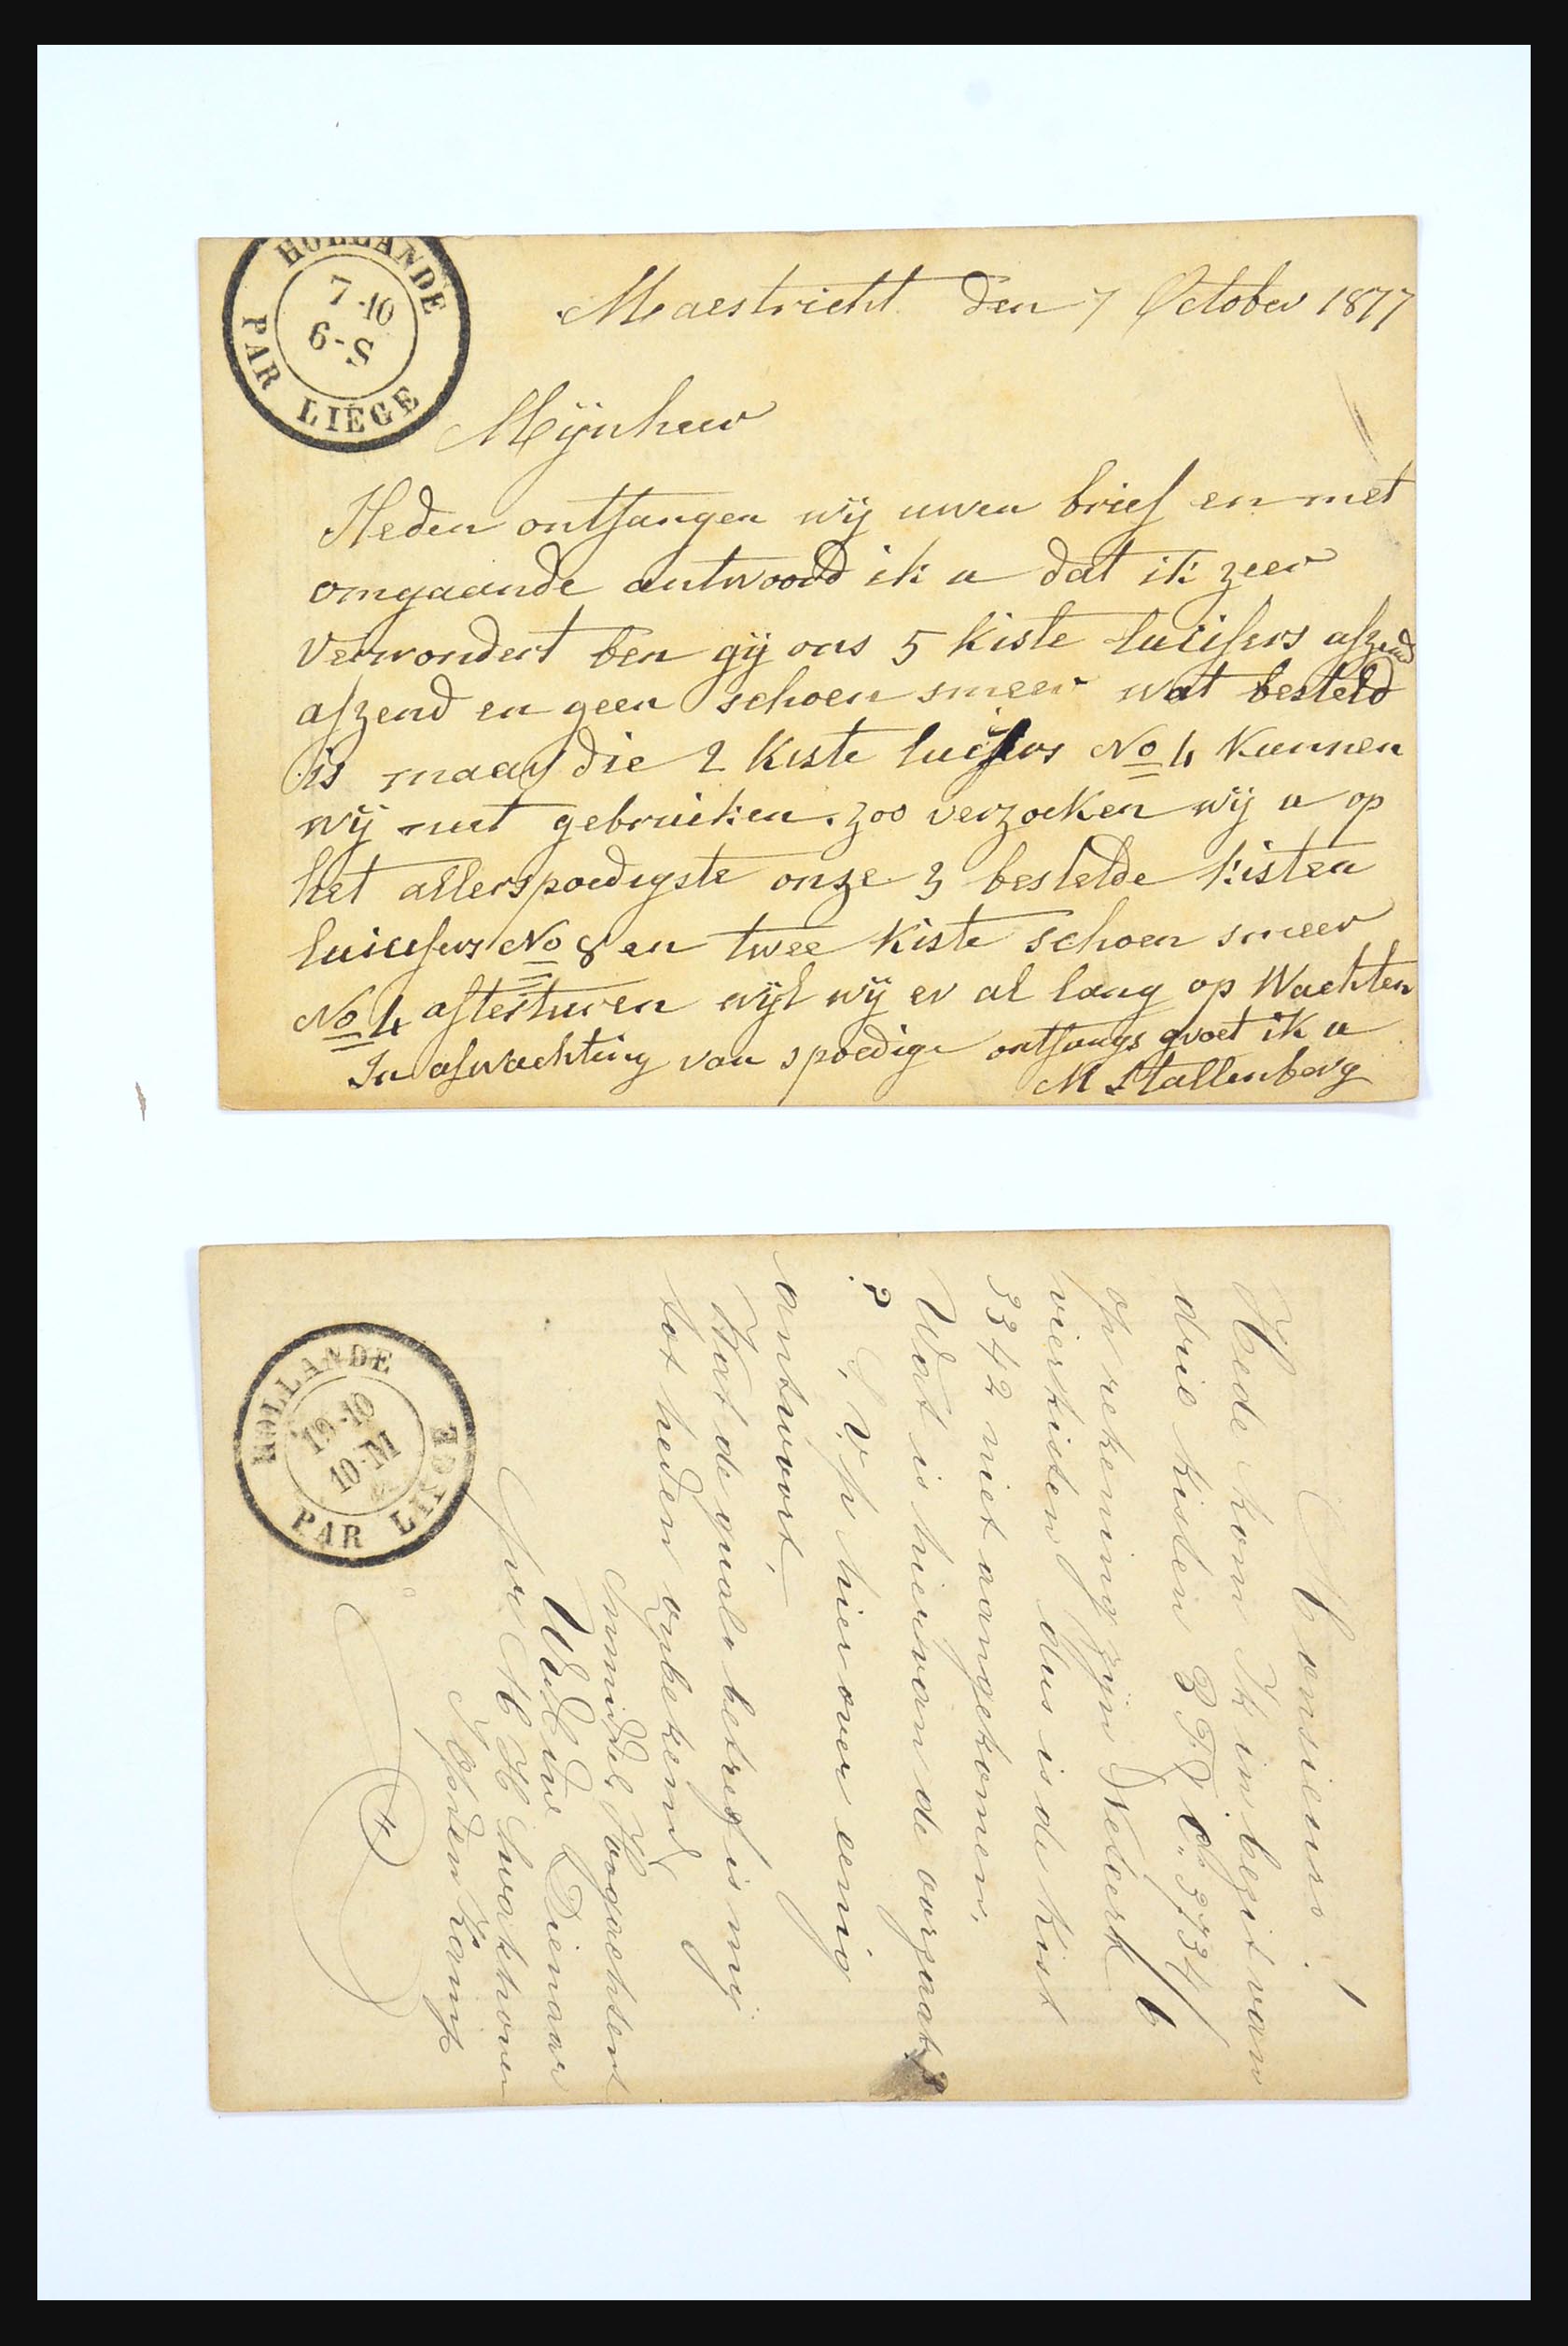 HOLLANDE
7-10
6-S
PAR LIÉGE
Maestricht den 7 October 1877
Mijnheer
Heden ontfangen wij uwen brief en met
omgaande antwoord ik u dat ik zeer
verwondert ben gij ons 5 kiste lucifers afzend
afzend en geen schoen smeer wat besteld
is maar die 2 kiste lucifers No 4 kunnen
wij niet gebruiken. zoo verzoeken wij u op
het allerspoedigste onze 3 bestelde kisten
lucifers No 8 en twee kiste schoen smeer
No 4 aftesturen wijl wij er al lang op Wachten
In afwachting van spoedige ontfangs groet ik u
M Stallenberg
HOLLANDE
19-10
10-M
PAR LIEGE
Monsieur!
Hede kom Ik in bezit van
drie kisten 3734/6
op rekening zijn
vierkisten dus is de Kist
3342 niet aangekomen,
Wat is hiervan de oorzaak
? S, V, p hier over eenig
antwoort,
Wat de qualv betref is mij
tot heden onbekend
Inmiddels Hoogachtent
UwEdw Dienaar
M H Swakhoven
Opden Kamp